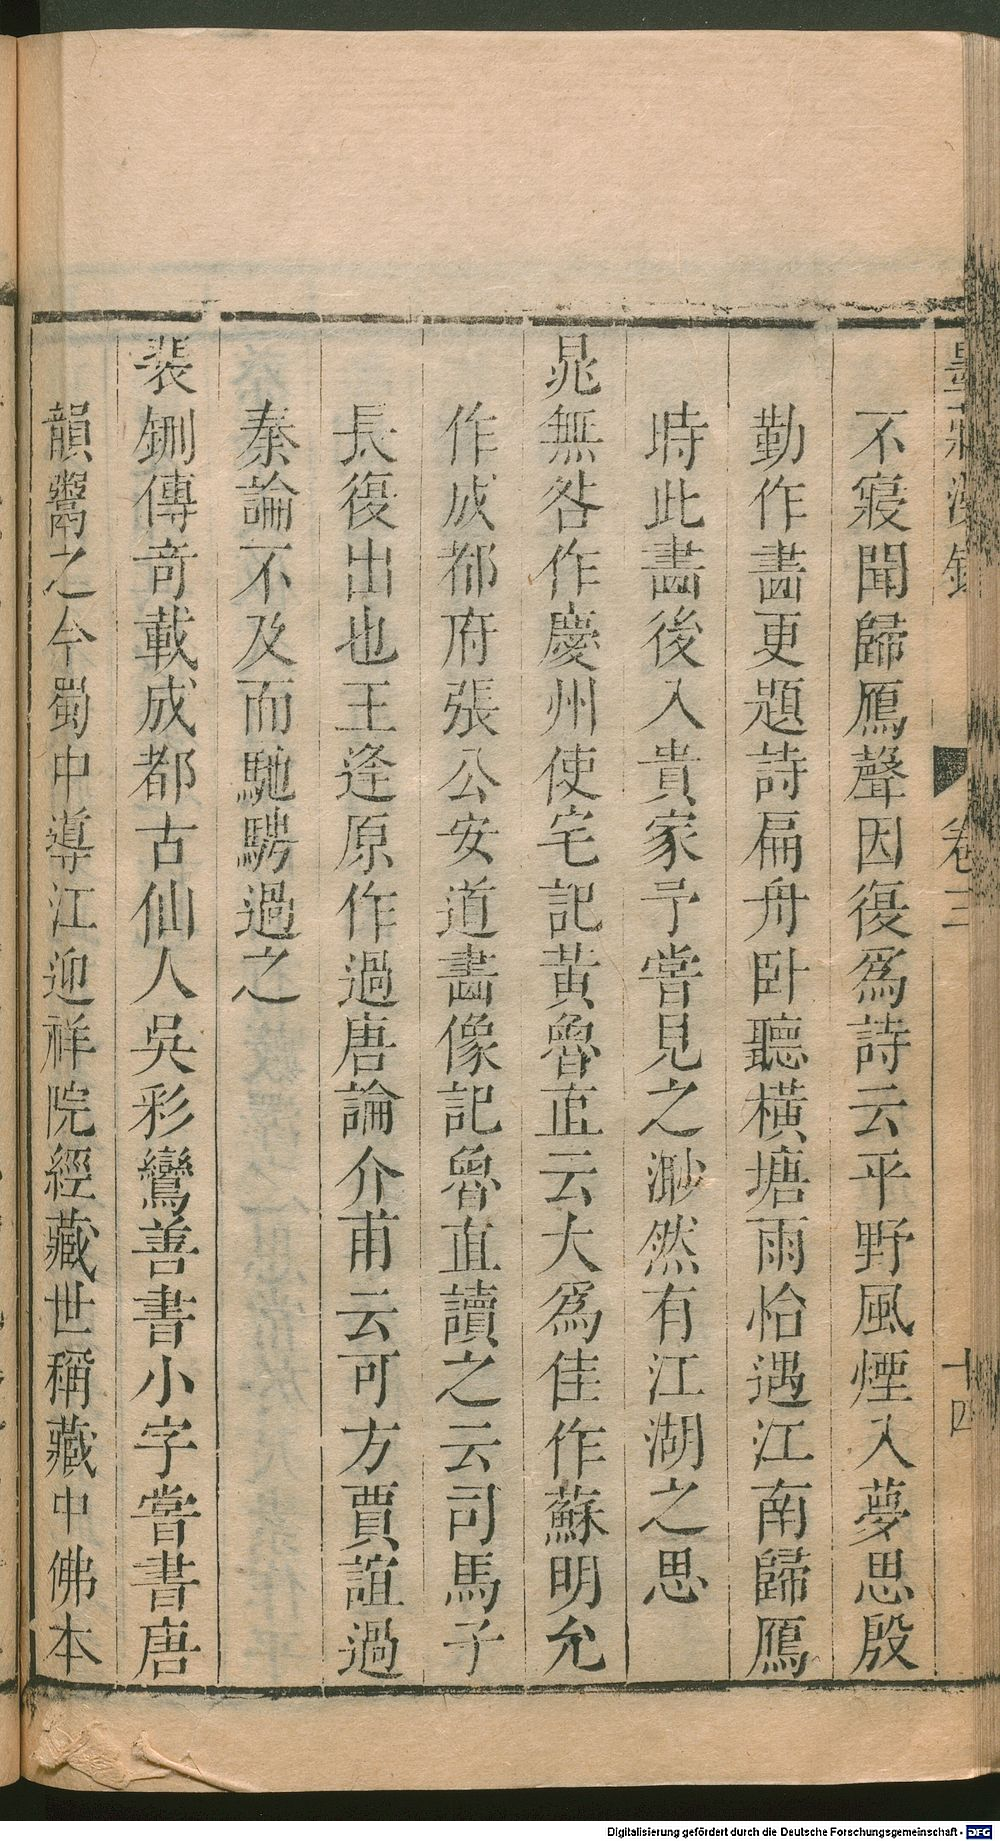 不寢聞歸鴈聲因復爲詩云平野風煙入夢思殷
勤作畵更題詩扁舟卧聽橫塘雨恰遇江南歸鴈
時此畵後入貴家予嘗見之渺然有江湖之思
晁無咎作慶州使宅記黃魯直云大爲佳作蘇明允
作成都府張公安道畵像記魯直讀之云司馬子
長復出也王逢原作過唐論介甫云可方賈誼過
秦論不及而馳騁過之
裴鉶傳奇載成都古仙人吳彩鸞善書小字嘗書唐
韻鬻之今蜀中導江迎祥院經藏世稱藏中佛本
卷三
十四
Digitalisierung gefördert durch die Deutsche Forschungsgemeinschaft - DFG